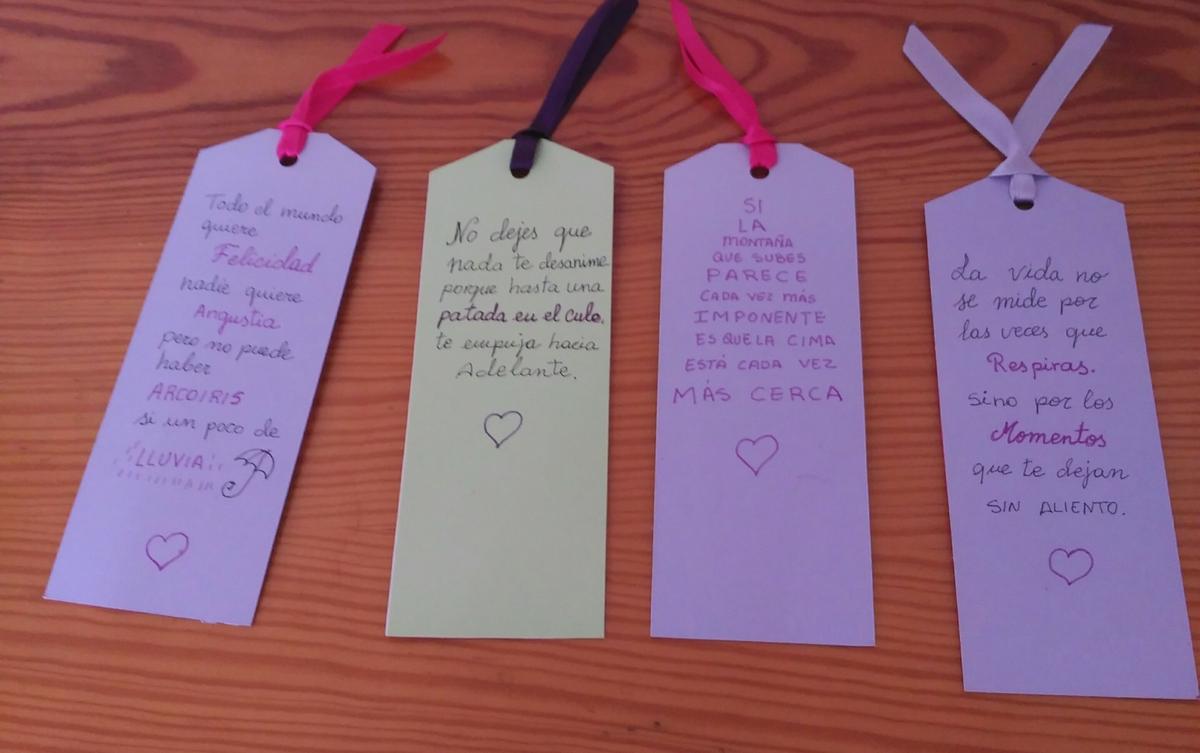 Todo el mundo
quiere
Felicidad
nadie quiere
Angustia
pero no puede
haber
ARCOIRIS
si un poco de
LLUVIA
No dejes que
nada te desanime
porque hasta una
patada en el culo,
te empuja hacia
Adelante.
SI
LA
MONTAÑA
QUE SUBES
PARECE
CADA VEZ MÁS
IMPONENTE
ES QUE LA CIMA
ESTÁ CADA VEZ
MÁS CERCA
La vida no
se mide por
las veces que
Respiras.
sino por los
Momentos
que te dejan
SIN ALIENTO.